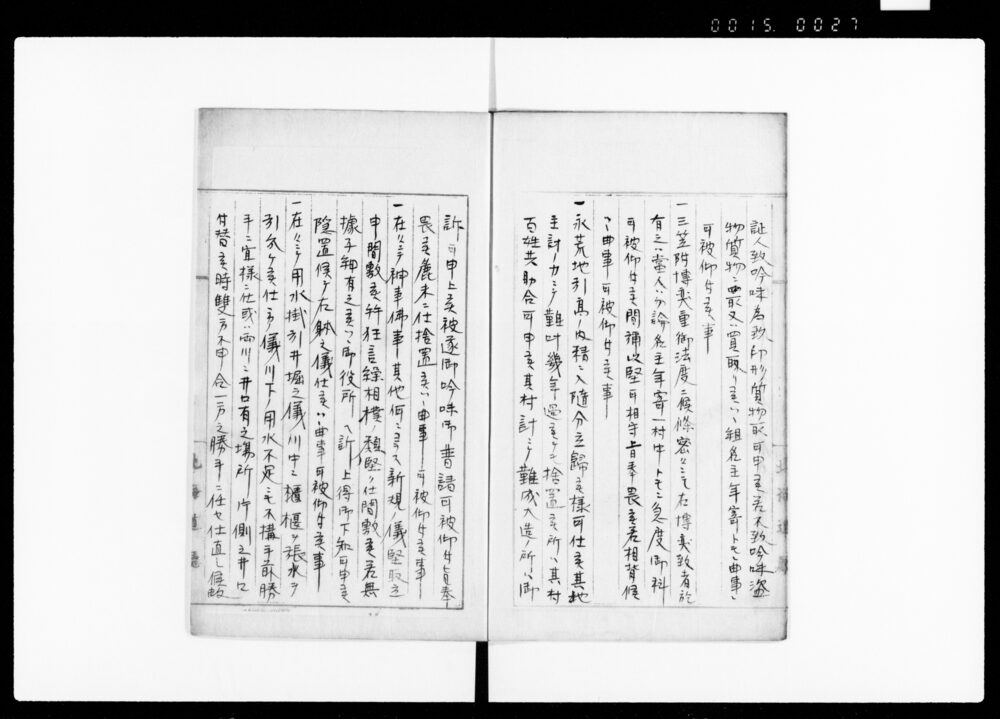 0015. 0027
証人致吟味為致印形質物取可申候若不致吟味盗
物質物ニ取又ハ買取り候ハヽ組名主年寄トモ曲事ニ
可被仰付候事
一三笠附博奕重御法度ニ候條密々ニモ右博奕致者於
有之ハ當人ハ勿論名主年寄一村中トモニ急度御科
可被仰付候間稠敷堅可相守旨奉畏候若相背候
ハヽ曲事可被仰付候事
一永荒地引高ノ内積ニ入随分立歸候様可仕候其地
主計ノ力ニテ難叶幾年過候テモ捨置候所ハ其村
百姓共助合可申候其村計ニテ難成大造ノ所ハ御
訴可申上候被遂御吟味御普請可被仰付旨奉
畏候麁末ニ仕捨置候ハヽ曲事ニ可被仰付候事
一在々ニテ神事佛事其他何ニヨラス新規ノ儀堅取立
申間敷候并狂言操相撲ノ類堅ク仕間敷候若無
據子細有之候ハヽ御役所ヘ訴ヘ上得御下知可申候
隠置候テ右躰之儀仕候ハヽ曲事可被仰付候事
一在々ニテ用水掛引井堀之儀川中ニ櫃堰ヲ張水ヲ
引分ケ候仕方ノ儀川下ノ用水不足ニモ不構手前勝
手ニ宜様ニ仕或ハ両川ニ井口有之場所片側之井口
付替候時雙方不申合一方之勝手ニ任セ仕直し候故